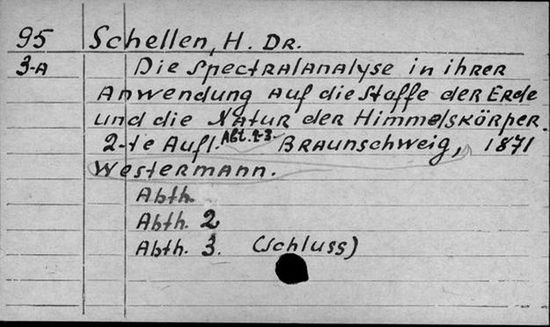 95 Schellen, H. Dr.
3-A Die Spectralanalyse in ihrer
Anwendung auf die Stoffe der Erde
und die Natur der Himmelskörper.
2-te Aufl. Abt. 2-3. Braunschweig, 1871
Westermann.
Abth.
Abth. 2
Abth. 3. (Schluss)